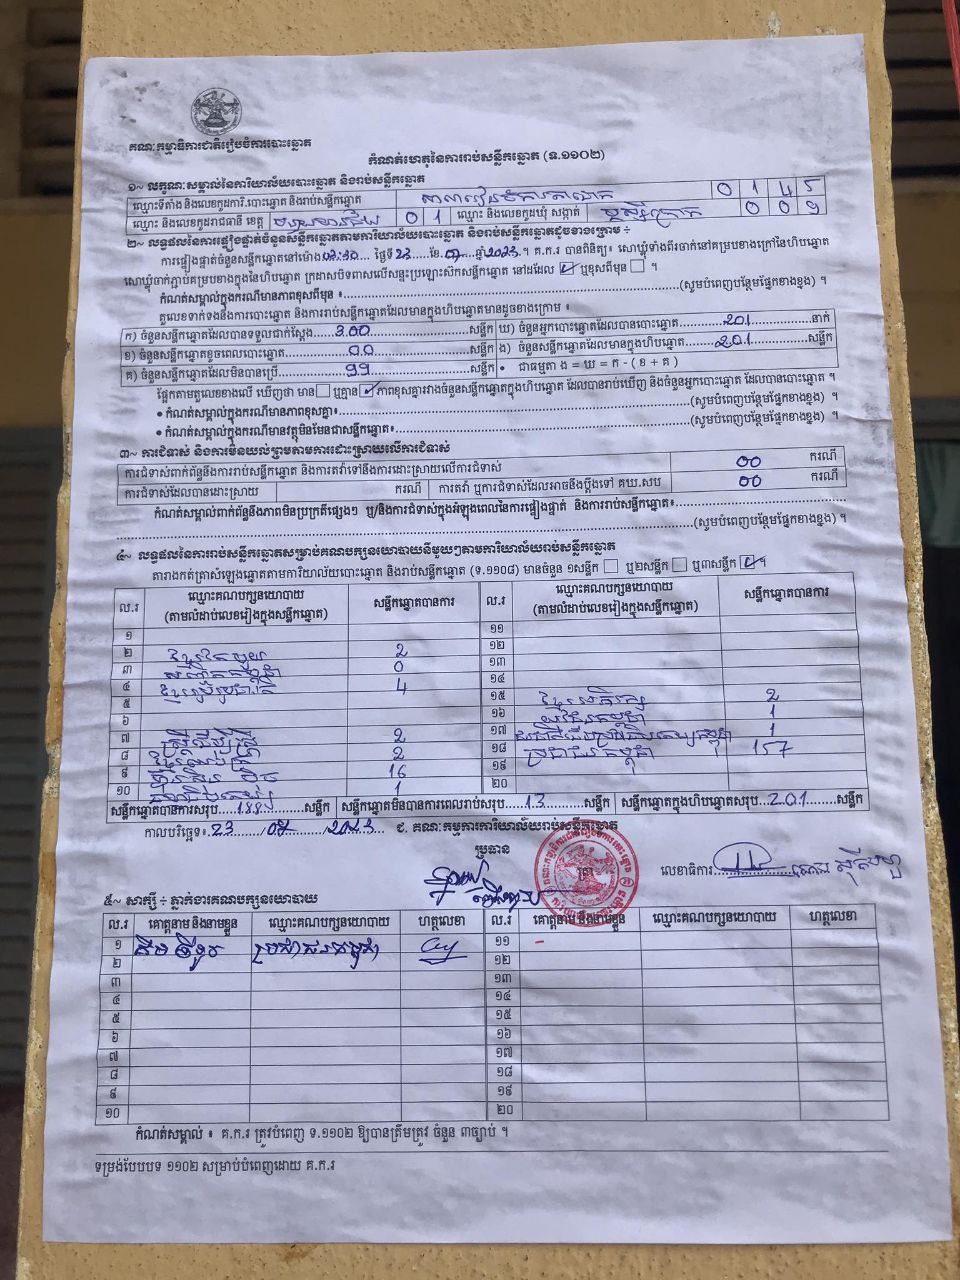 គណៈកម្មាធិការជាតិរៀបចំការបោះឆ្នោត
កំណត់ហេតុនៃការរាប់សន្លឹកឆ្នោត (ទ.១១០២)
១~ លក្ខណៈសម្គាល់នៃការិយាល័យបោះឆ្នោត និងរាប់សន្លឹកឆ្នោត
ឈ្មោះទីតាំង និងលេខកូដការិ.បោះឆ្នោត និងរាប់សន្លឹកឆ្នោត 0 1 4 5
ឈ្មោះ និងលេខកូដរាជធានី ខេត្ត បន្ទាយមានជ័យ 0 1 ឈ្មោះ និងលេខកូដឃុំ សង្កាត់ 0 0 9
២~ លទ្ធផលនៃការផ្ទៀងផ្ទាត់ចំនួនសន្លឹកឆ្នោតតាមការិយាល័យបោះឆ្នោត និងរាប់សន្លឹកឆ្នោតដូចខាងក្រោម ÷
ការផ្ទៀងផ្ទាត់ចំនួនសន្លឹកឆ្នោតនៅម៉ោង 03:30 ថ្ងៃទី 23 ខែ 07 ឆ្នាំ 2023 ។ គ.ក.រ បានពិនិត្យ៖ សោឃ្លុំទាំងពីរចាក់នៅគម្របខាងក្រៅនៃហិបឆ្នោត
សោឃ្លុំចាក់ភ្ជាប់គម្របខាងក្នុងនៃហិបឆ្នោត ក្រដាសបិទពាសលើសន្ទះប្រឡោះសិកសន្លឹកឆ្នោត នៅដដែល ☑ ឬខុសពីមុន ☐ ។
កំណត់សម្គាល់ក្នុងករណីមានភាពខុសពីមុន ៖ (សូមបំពេញបន្ថែមផ្នែកខាងខ្នង) ។
តួលេខទាក់ទងនឹងការបោះឆ្នោត និងការរាប់សន្លឹកឆ្នោតដែលមានក្នុងហិបឆ្នោតមានដូចខាងក្រោម ៖
ក) ចំនួនសន្លឹកឆ្នោតដែលបានទទួលជាក់ស្តែង 300 សន្លឹក ឃ) ចំនួនអ្នកបោះឆ្នោតដែលបានបោះឆ្នោត 201 នាក់
ខ) ចំនួនសន្លឹកឆ្នោតខូចពេលបោះឆ្នោត 00 សន្លឹក ង) ចំនួនសន្លឹកឆ្នោតដែលមានក្នុងហិបឆ្នោត 201 សន្លឹក
គ) ចំនួនសន្លឹកឆ្នោតដែលមិនបានប្រើ 99 សន្លឹក • ជាធម្មតា ង = ឃ = ក - ( ខ + គ )
ផ្អែកតាមតួលេខខាងលើ ឃើញថា មាន ☐ ឬគ្មាន ☑ ភាពខុសគ្នារវាងចំនួនសន្លឹកឆ្នោតក្នុងហិបឆ្នោត ដែលបានរាប់ឃើញ និងចំនួនអ្នកបោះឆ្នោត ដែលបានបោះឆ្នោត ។
• កំណត់សម្គាល់ក្នុងករណីមានភាពខុសគ្នា៖ (សូមបំពេញបន្ថែមផ្នែកខាងខ្នង) ។
• កំណត់សម្គាល់ក្នុងករណីមានវត្ថុមិនមែនជាសន្លឹកឆ្នោត៖ (សូមបំពេញបន្ថែមផ្នែកខាងខ្នង) ។
៣~ ការជំទាស់ និងការមិនយល់ព្រមតាមការដោះស្រាយលើការជំទាស់
ការជំទាស់ពាក់ព័ន្ធនឹងការរាប់សន្លឹកឆ្នោត និងការតវ៉ាទៅនឹងការដោះស្រាយលើការជំទាស់ 00 ករណី
ការជំទាស់ដែលបានដោះស្រាយ ករណី ការតវ៉ា ឬការជំទាស់ដែលអាចនឹងប្តឹងទៅ គឃ.សប 00 ករណី
កំណត់សម្គាល់ពាក់ព័ន្ធនឹងភាពមិនប្រក្រតីផ្សេងៗ ឬ/និងការជំទាស់ក្នុងអំឡុងពេលនៃការផ្ទៀងផ្ទាត់ និងការរាប់សន្លឹកឆ្នោត៖
(សូមបំពេញបន្ថែមផ្នែកខាងខ្នង) ។
៤~ លទ្ធផលនៃការរាប់សន្លឹកឆ្នោតសម្រាប់គណបក្សនយោបាយនីមួយៗតាមការិយាល័យរាប់សន្លឹកឆ្នោត
តារាងកត់ត្រាសំឡេងឆ្នោតតាមការិយាល័យបោះឆ្នោត និងរាប់សន្លឹកឆ្នោត (ទ.១១០៨) មានចំនួន ១សន្លឹក ☐ ឬ២សន្លឹក ☐ ឬ៣សន្លឹក ☑ ។
ល.រ ឈ្មោះគណបក្សនយោបាយ សន្លឹកឆ្នោតបានការ ល.រ ឈ្មោះគណបក្សនយោបាយ សន្លឹកឆ្នោតបានការ
(តាមលំដាប់លេខរៀងក្នុងសន្លឹកឆ្នោត) (តាមលំដាប់លេខរៀងក្នុងសន្លឹកឆ្នោត)
១ ១១
២ ខ្មែរតែមួយ 2 ១២
៣ 0 ១៣
៤ 4 ១៤
៥ ១៥ ខ្មែរអភិរក្ស 2
៦ ១៦ 1
៧ 2 ១៧ 1
៨ 2 ១៨ ប្រជាជនកម្ពុជា 157
៩ ហ្វ៊ុនស៊ិនប៉ិច 16 ១៩
១០ 1 ២០
សន្លឹកឆ្នោតបានការសរុប 188 សន្លឹក សន្លឹកឆ្នោតមិនបានការពេលរាប់សរុប 13 សន្លឹក សន្លឹកឆ្នោតក្នុងហិបឆ្នោតសរុប 201 សន្លឹក
កាលបរិច្ឆេទ៖ 23 / 07 / 2023 ជ. គណៈកម្មការការិយាល័យរាប់សន្លឹកឆ្នោត
ប្រធាន
លេខាធិការ
៥~ សាក្សី ÷ ភ្នាក់ងារគណបក្សនយោបាយ
ល.រ គោត្តនាម និងនាមខ្លួន ឈ្មោះគណបក្សនយោបាយ ហត្ថលេខា ល.រ គោត្តនាម និងនាមខ្លួន ឈ្មោះគណបក្សនយោបាយ ហត្ថលេខា
១ ប្រជាជនកម្ពុជា ១១
២ ១២
៣ ១៣
៤ ១៤
៥ ១៥
៦ ១៦
៧ ១៧
៨ ១៨
៩ ១៩
១០ ២០
កំណត់សម្គាល់ ៖ គ.ក.រ ត្រូវបំពេញ ទ.១១០២ ឱ្យបានត្រឹមត្រូវ ចំនួន ៣ច្បាប់ ។
ទម្រង់បែបបទ ១១០២ សម្រាប់បំពេញដោយ គ.ក.រ